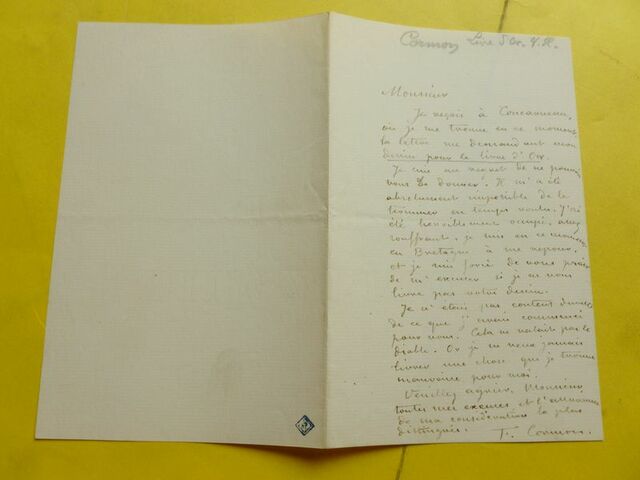 Cormon Livre d'Or. V. H.
Monsieur
Je reçois à Concarneau,
où je me trouve en ce moment
la lettre me demandant mon
dessin pour le livre d'Or.
Je suis au regret de ne pouvoir
vous le donner. Il m'a été
absolument impossible de le
terminer en temps voulu. J'ai
été horriblement occupé, assez
souffrant, je suis en ce moment
en Bretagne à me reposer
et je suis forcé de vous prier
de m'excuser si je ne vous
livre pas votre dessin.
Je n'étais pas content du reste
de ce que j'avais commencé
pour vous. Cela ne valait pas le
diable. Or je ne veux jamais
livrer une chose que je trouve
mauvaise pour moi.
Veuillez agréer, Monsieur
toutes mes excuses et l'assurance
de ma considération la plus
distinguée.
F. Cormon.